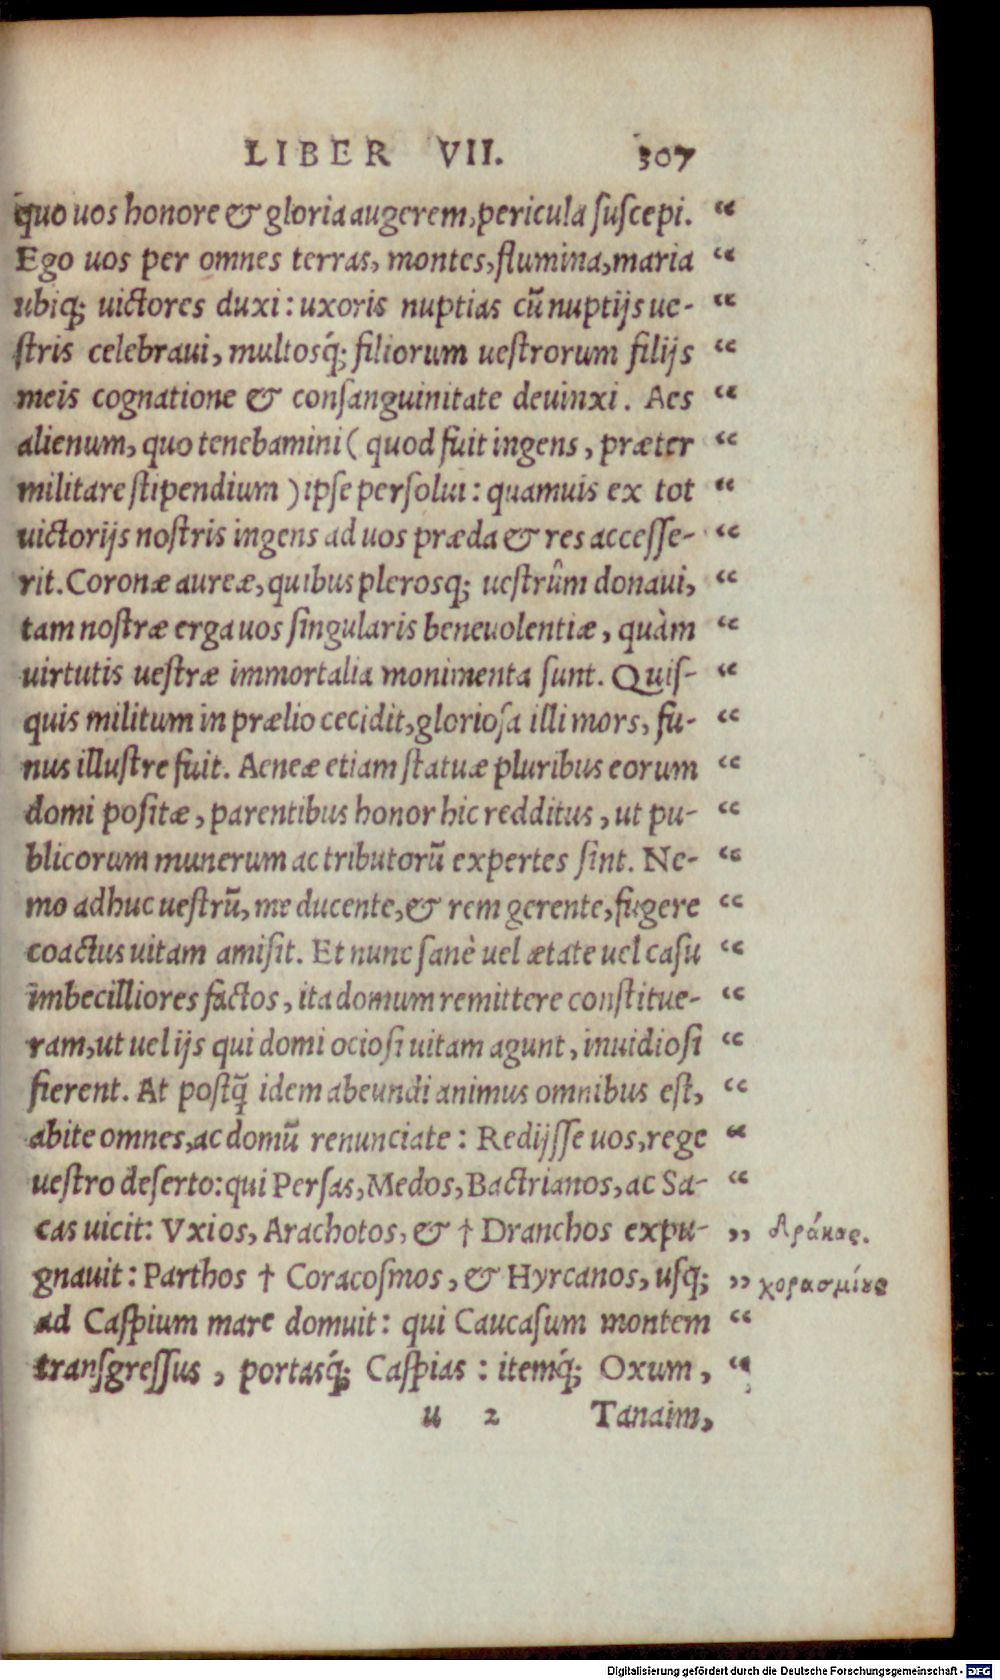 LIBER VII. 307
quo uos honore & gloria augerem, pericula ſuſcepi. “
Ego uos per omnes terras, montes, flumina, maria “
ubiq; uictores duxi: uxoris nuptias cũ nuptijs ue- “
ſtris celebraui, multosq́; filiorum ueſtrorum filijs “
meis cognatione & conſanguinitate deuinxi. Aes “
alienum, quo tenebamini (quod fuit ingens, præter “
militare ſtipendium) ipſe perſolui: quamuis ex tot “
uictorijs noſtris ingens ad uos præda & res acceſſe- “
rit. Coronæ aureæ, quibus plerosq; ueſtrûm donaui, “
tam noſtræ erga uos ſingularis beneuolentiæ, quàm “
uirtutis ueſtræ immortalia monimenta ſunt. Quiſ- “
quis militum in prælio cecidit, glorioſa illi mors, fu- “
nus illuſtre fuit. Aeneæ etiam ſtatuæ pluribus eorum “
domi poſitæ, parentibus honor hic redditus, ut pu- “
blicorum munerum ac tributorũ expertes ſint. Ne- “
mo adhuc ueſtrũ, me ducente, & rem gerente, fugere “
coactus uitam amiſit. Et nunc ſanè uel ætate uel caſu “
imbecilliores factos, ita domum remittere conſtitue- “
ram, ut uel ijs qui domi ocioſi uitam agunt, inuidioſi “
fierent. At poſtq̃ idem abeundi animus omnibus eſt, “
abite omnes, ac domũ renunciate: Redijſſe uos, rege “
ueſtro deſerto: qui Perſas, Medos, Bactrianos, ac Sa- “
cas uicit: Vxios, Arachotos, & † Dranchos expu- ” Δράκας.
gnauit: Parthos † Coracoſmos, & Hyrcanos, uſq; ” χορασμίους
ad Caſpium mare domuit: qui Caucaſum montem “
tranſgreſſus, portasq́; Caſpias: itemq́; Oxum, “
u 2 Tanaim,
Digitalisierung gefördert durch die Deutsche Forschungsgemeinschaft - DFG